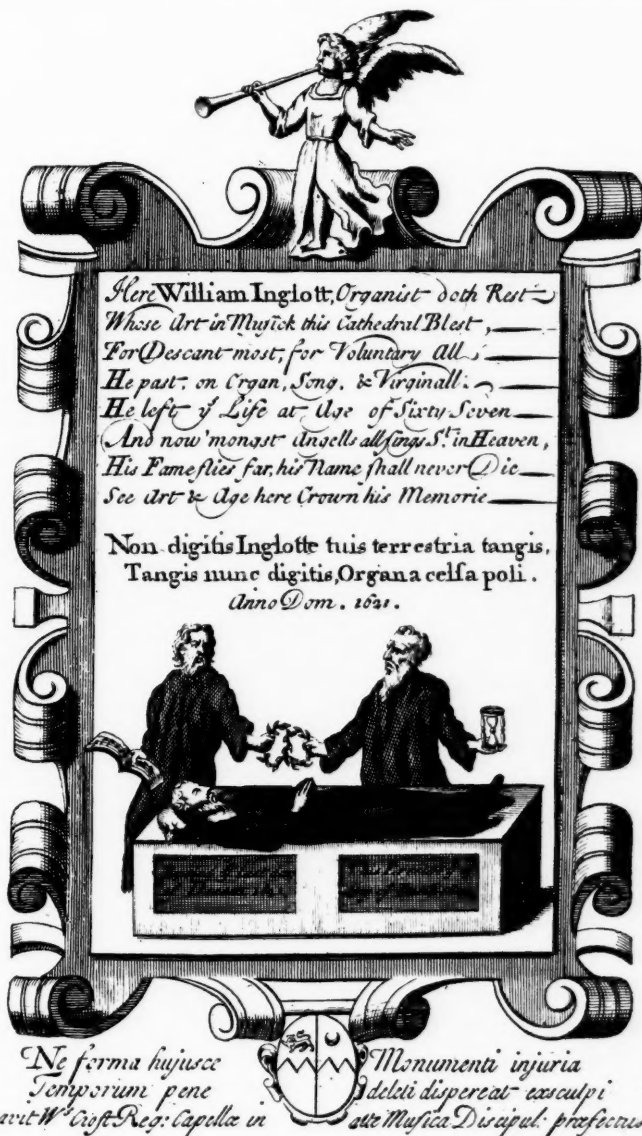 Here William Inglott, Organist doth Rest
Whose Art in Musick this Cathedral Blest,
For Descant most, for Voluntary All,
He past, on Organ, Song, & Virginall.
He left yͤ Life at Age of Sixty Seven
And now 'mongst Angells all sings Sͭ. in Heaven,
His Fame flies far, his Name shall never Die
See Art & Age here Crown his Memorie
Non digitis Inglotte tuis terrestria tangis,
Tangis nunc digitis, Organa celsa poli.
Anno Dom. 1621.
Ne forma hujusce Monumenti injuria
Temporum pene deleti dispereat exsculpi
Wͫ Croft Reg: Capellæ in Musica Discipul: præfectus